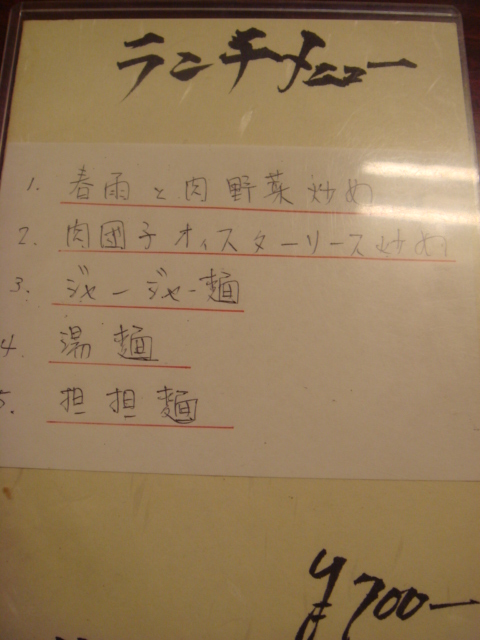 ランチメニュー
1. 春雨と肉野菜炒め
2. 肉団子オイスターソース炒め
3. ジャージャー麺
4. 湯麺
5. 担担麺
¥700-